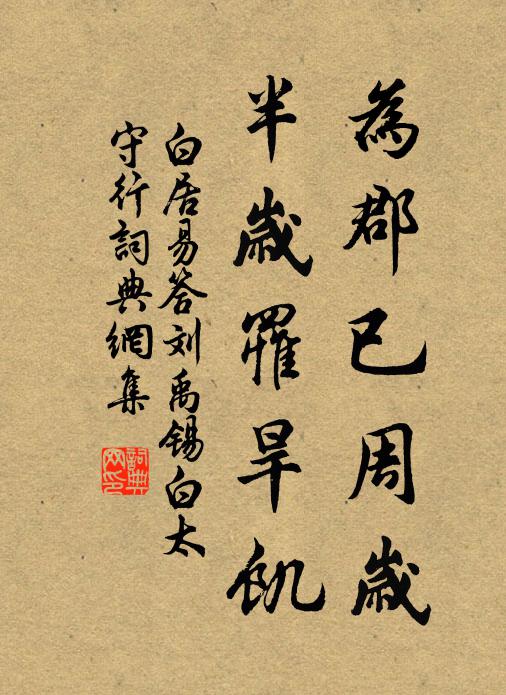 為郡已周歲
半歲罹旱飢
白居易答刘禹锡白太
守行詞典網集
詞典网印